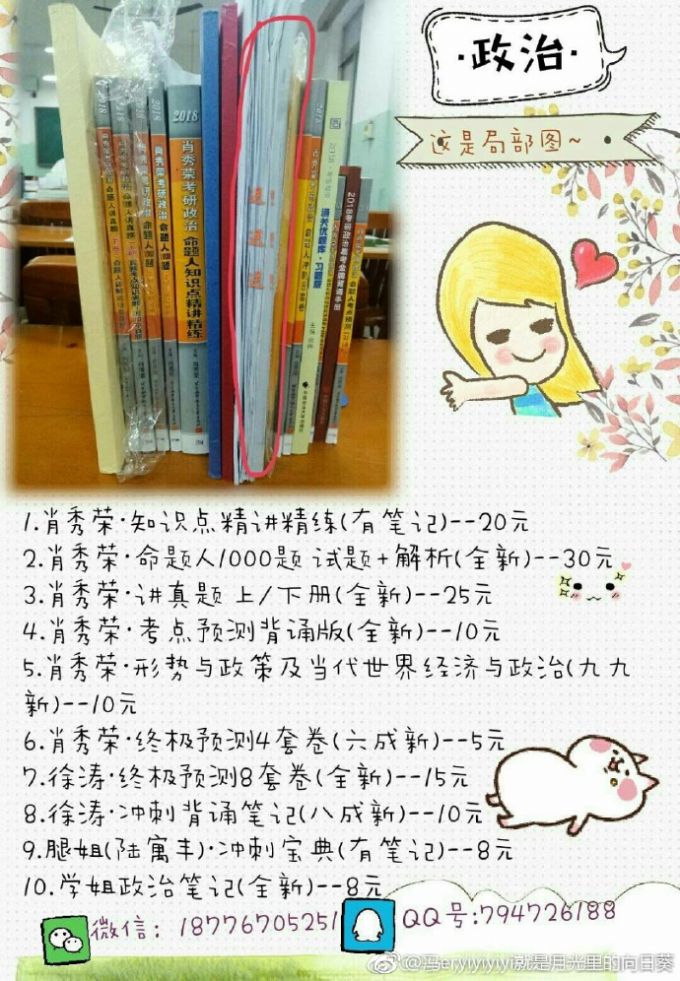 ·政治·
这是局部图~
2018
肖秀荣考研政治
命题人知识点精讲精练
2018
肖秀荣考研政治
命题人1000题
1.肖秀荣·知识点精讲精练(有笔记)--20元
2.肖秀荣·命题人1000题 试题+解析(全新)--30元
3.肖秀荣·讲真题 上/下册(全新)--25元
4.肖秀荣·考点预测背诵版(全新)--10元
5.肖秀荣·形势与政策及当代世界经济与政治(九九
新)--10元
6.肖秀荣·终极预测4套卷(六成新)--5元
7.徐涛·终极预测8套卷(全新)--15元
8.徐涛·冲刺背诵笔记(八成新)--10元
9.腿姐(陆寓丰)·冲刺宝典(有笔记)--8元
10.学姐政治笔记(全新)--8元
微信：18776705251
QQ号:794726188
@冯eryiyiyiyi就是月光里的向日葵